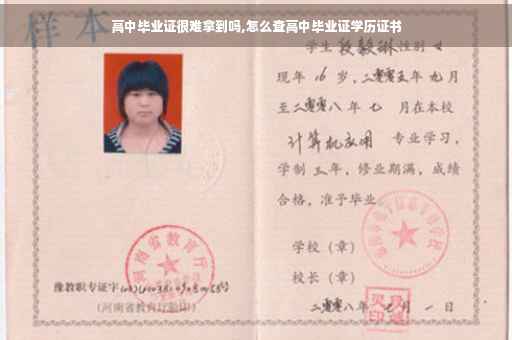 高中毕业证很难拿到吗,怎么查高中毕业证学历证书
样本
学生 段毅琳 性别 女
现年 16 岁，二零零五年 九 月
至二零零八年 七 月在本校
计算机应用 专业学习，
学制 三 年，修业期满，成绩
合格，准予毕业
学校（章）
校长（章）
二零零八年 七 月 一 日
河南省教育厅
豫教职专证字
（河南省教育厅验印）